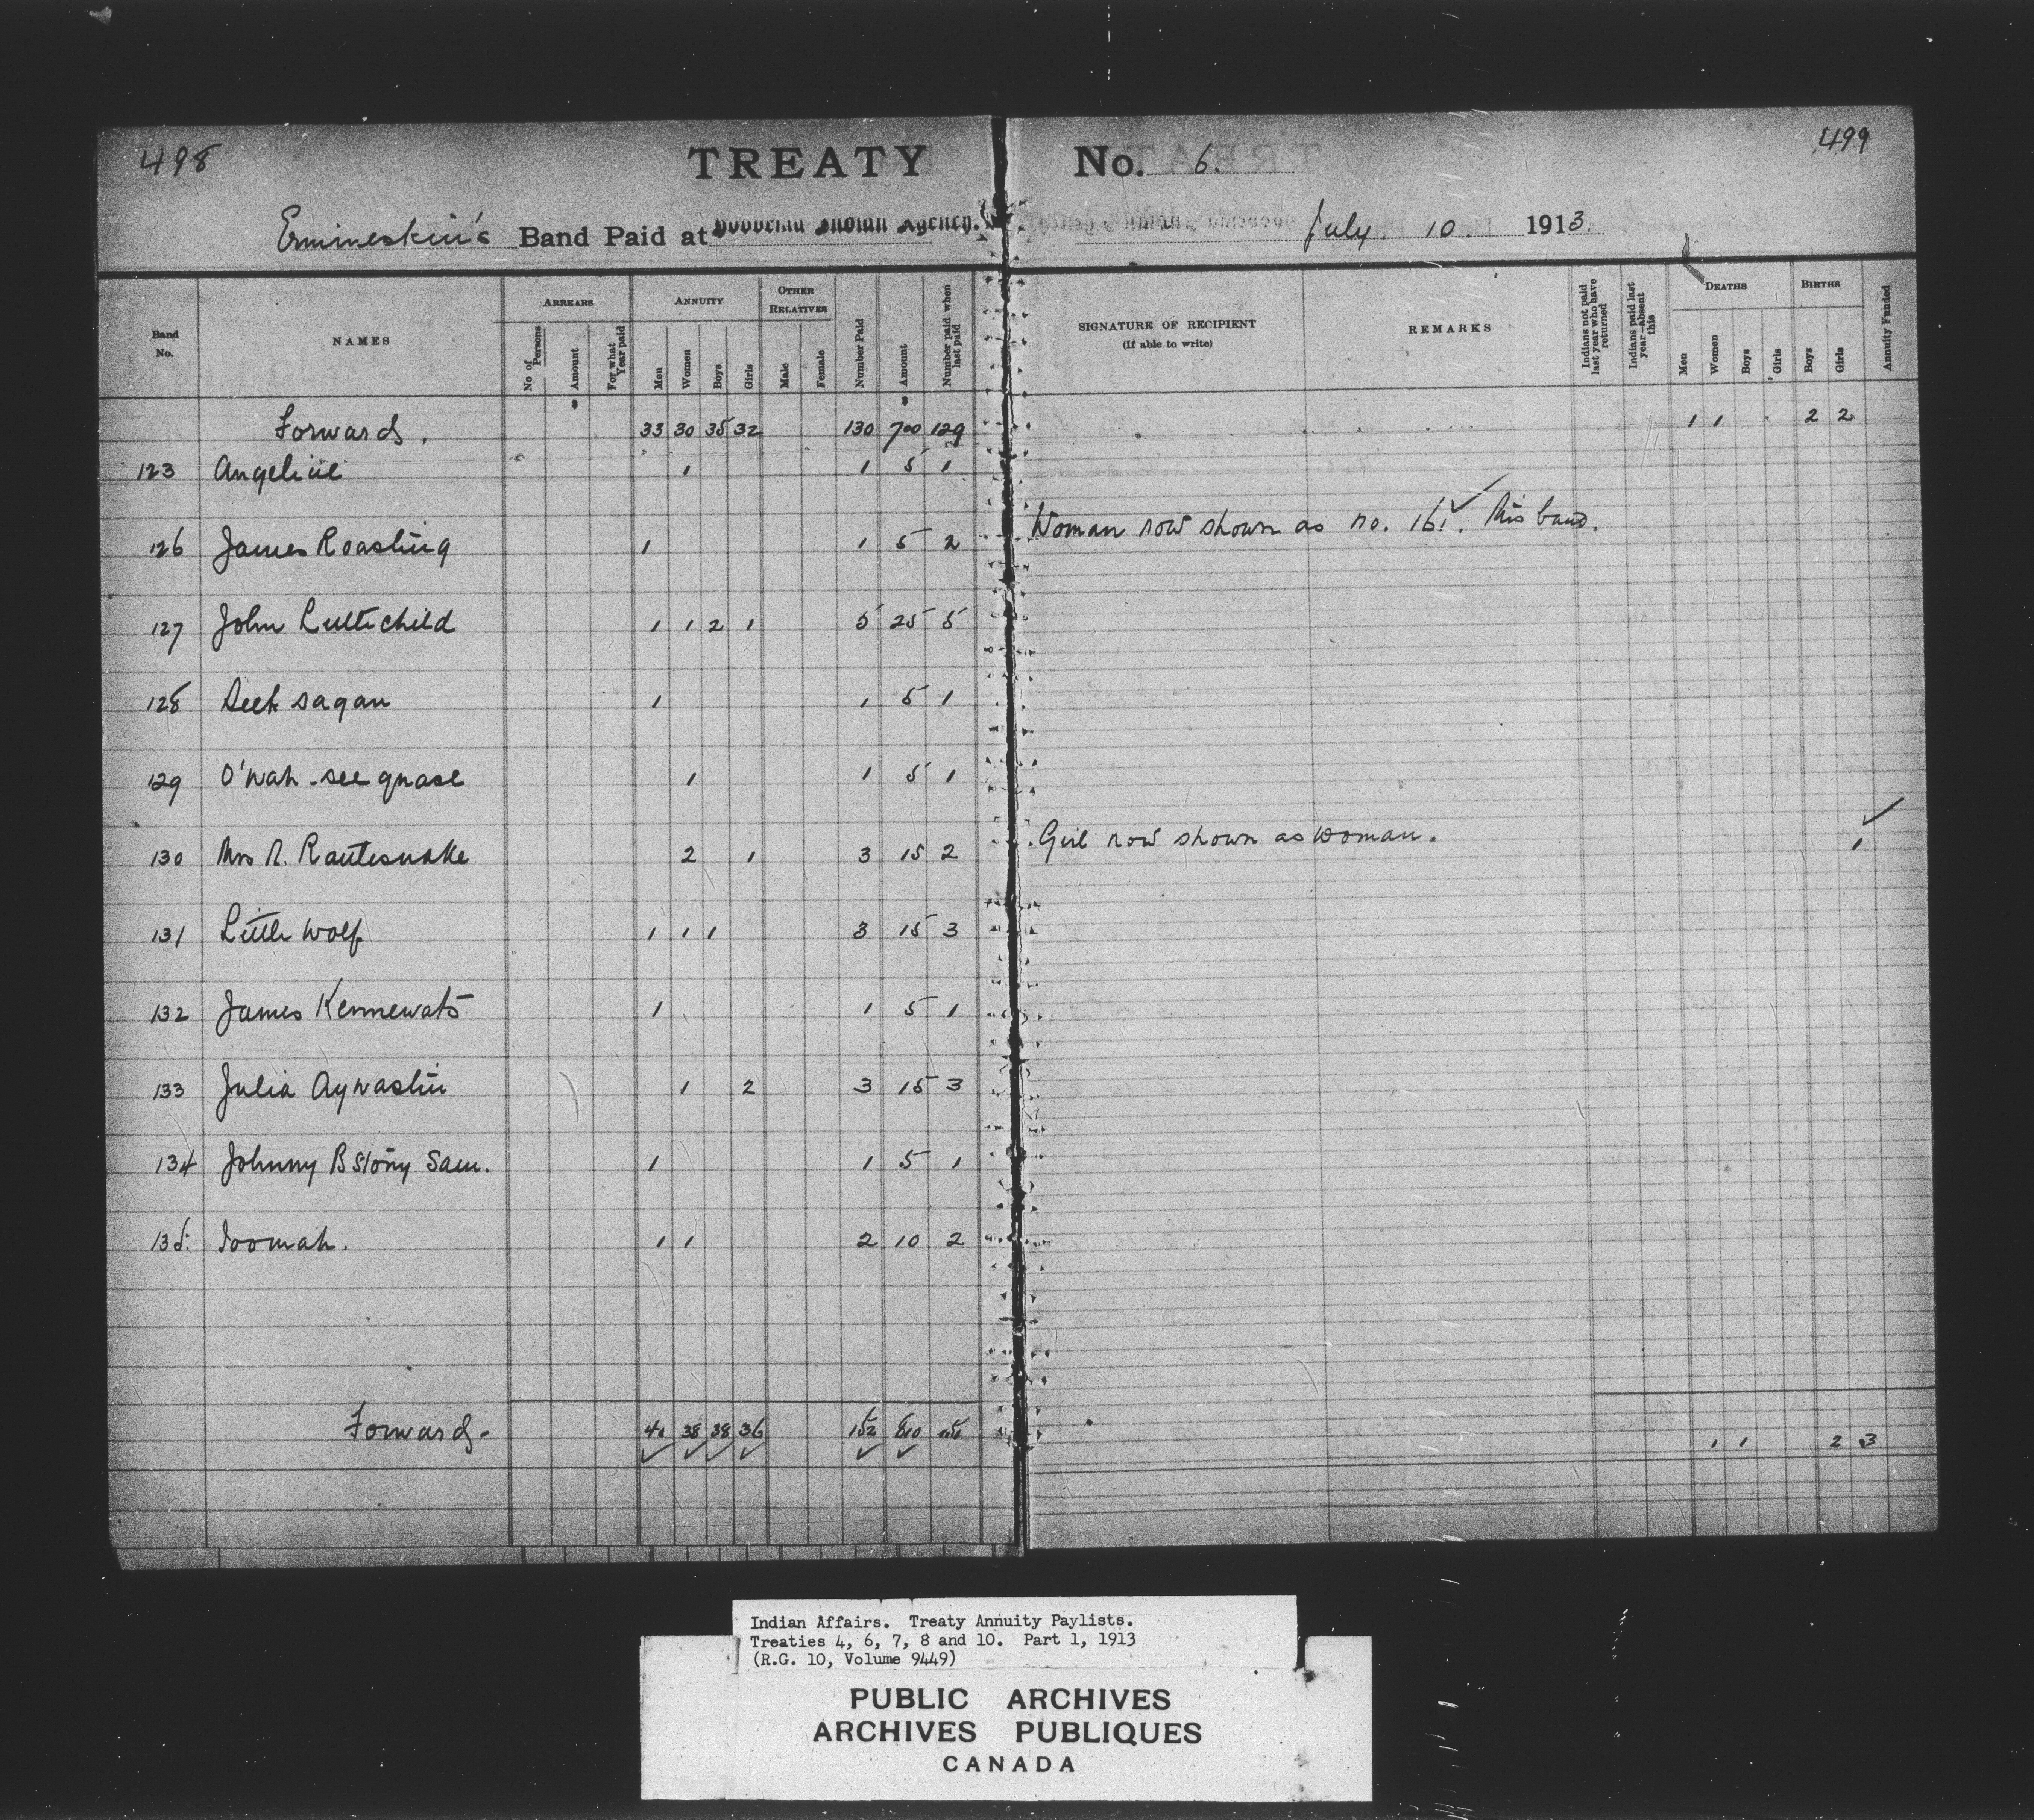 498
TREATY No. 6.
499
Ermineskin's Band Paid at Hobbema Indian Agency. July 10 1913.
Band No. NAMES ARREARS ANNUITY OTHER RELATIVES Number Paid Amount Number paid when last paid SIGNATURE OF RECIPIENT (If able to write) REMARKS Indians not paid last year who have returned Indians paid last year—absent this DEATHS BIRTHS Annuity Funded
No of Persons Amount For what Year paid Men Women Boys Girls Male Female Men Women Boys Girls Boys Girls
Forwards. 33 30 35 32 130 700 129 1 1 2 2
123 Angelique 1 1 5 1
126 James Roasting 1 1 5 2 Woman now shown as no. 161. this band.
127 John Littlechild 1 1 2 1 5 25 5
128 Seek sagan 1 1 5 1
129 O'wah-see quase 1 1 5 1
130 Mrs R. Rattlesnake 2 1 3 15 2 Girl now shown as woman. 1
131 Little Wolf 1 1 1 3 15 3
132 James Kennewats 1 1 5 1
133 Julia Aywastin 1 2 3 15 3
134 Johnny B Stony Sam. 1 1 5 1
135. Toomah. 1 1 2 10 2
Forwards- 40 38 38 36 152 810 151 1 1 2 3
Indian Affairs. Treaty Annuity Paylists.
Treaties 4, 6, 7, 8 and 10. Part 1, 1913
(R.G. 10, Volume 9449)
PUBLIC ARCHIVES
ARCHIVES PUBLIQUES
CANADA